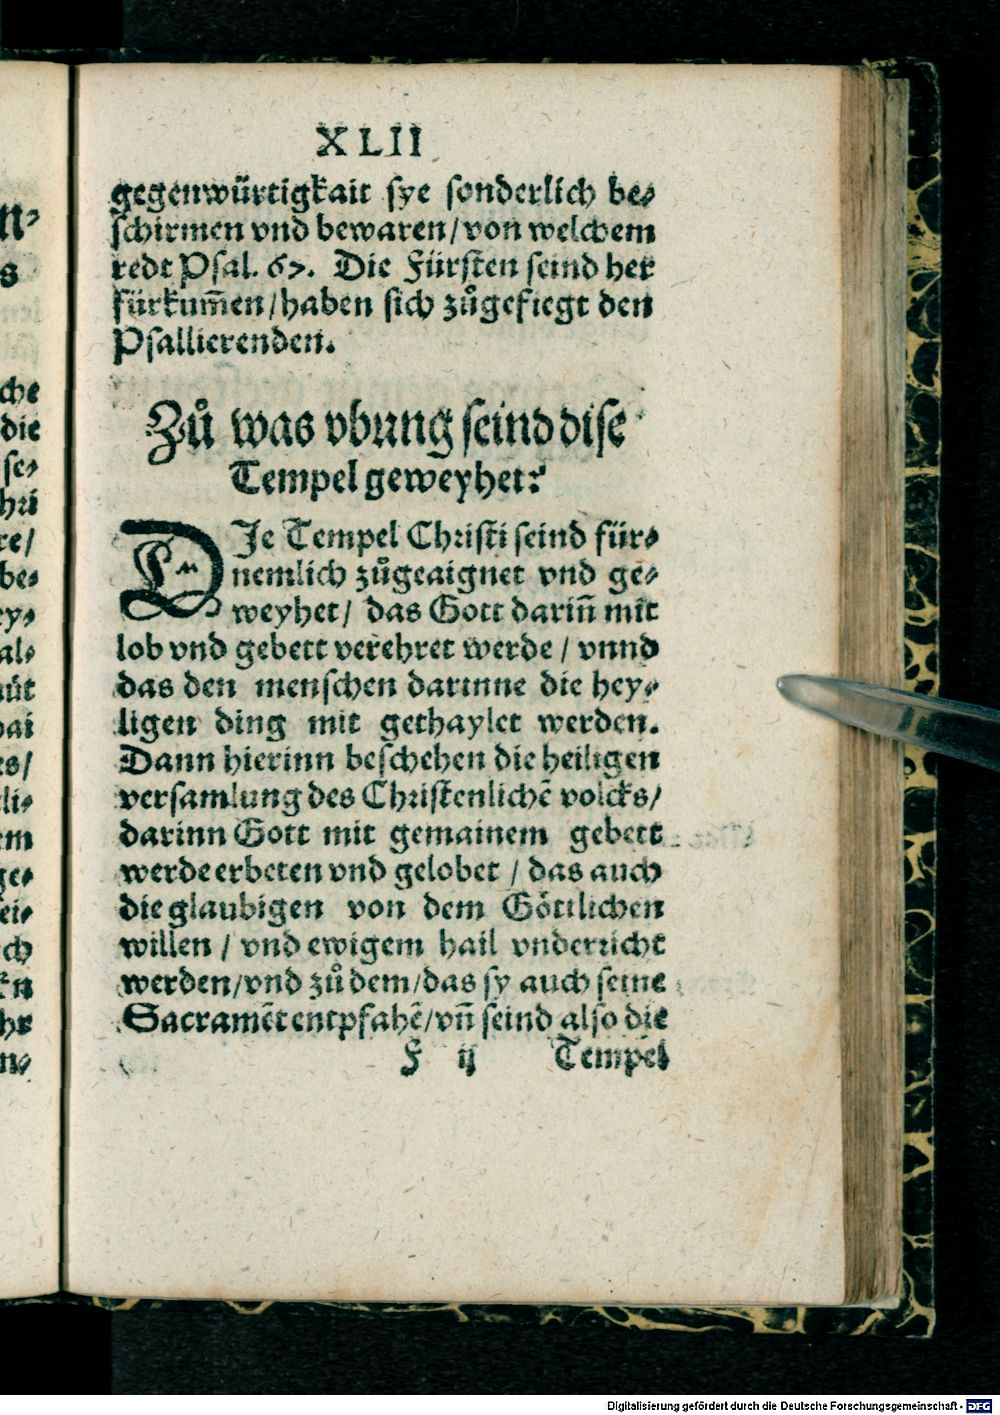 XLII
gegenwürtigkait sye sonderlich be⸗
schirmen vnd bewaren/von welchem
redt Psal. 67. Die Fürsten seind her
fürkum̃en/haben sich zůgefiegt den
Psallierenden.
Zů was vbung seind dise
Tempel geweyhet?
DIe Tempel Christi seind für⸗
nemlich zůgeaignet vnd ge⸗
weyhet/ das Gott dariñ mit
lob vnd gebett verehret werde / vnnd
das den menschen darinne die hey⸗
ligen ding mit gethaylet werden.
Dann hierinn beschehen die heiligen
versamlung des Christenlichẽ volcks/
darinn Gott mit gemainem gebett
werde erbeten vnd gelobet / das auch
die glaubigen von dem Göttlichen
willen / vnd ewigem hail vnderricht
werden/vnd zů dem/das sy auch seine
Sacramẽt entpfahẽ/vñ seind also die
F ij Tempel
n⸗
s
che
die
se⸗
hri
re/
be⸗
ey⸗
al⸗
müt
es/
li⸗
em
ge⸗
ei⸗
ch
hr
n⸗
Digitalisierung gefördert durch die Deutsche Forschungsgemeinschaft - DFG